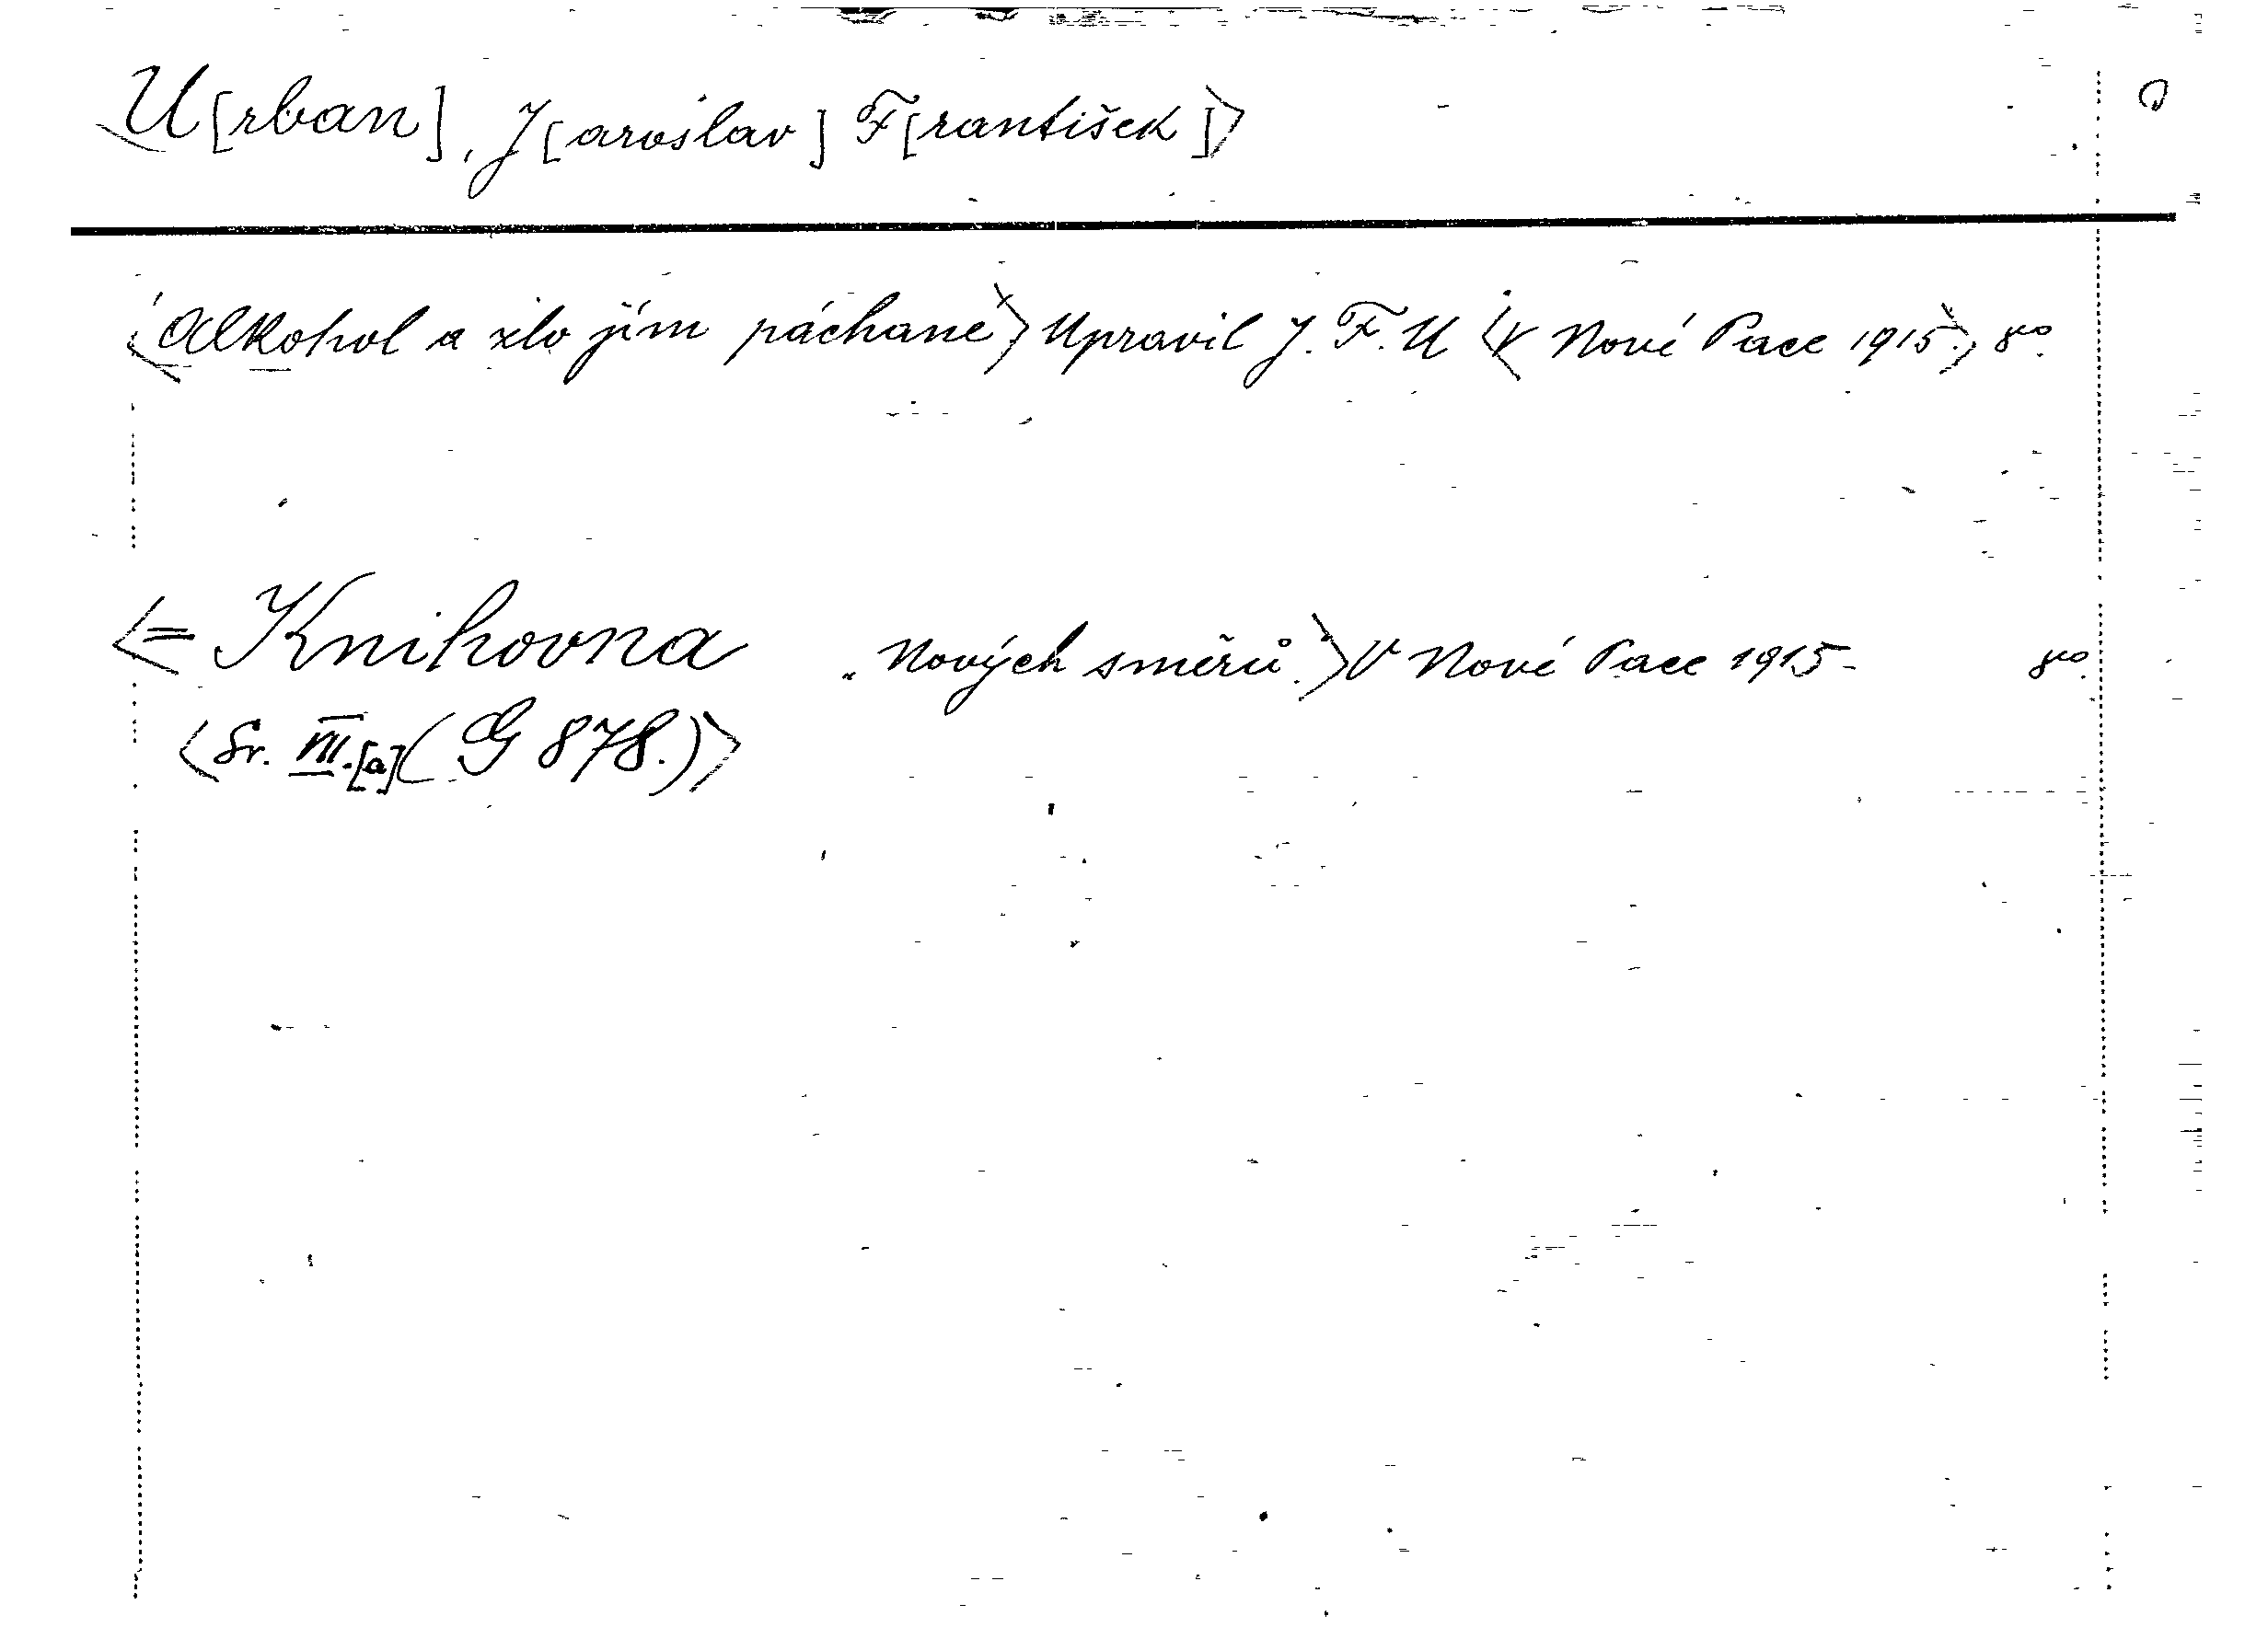 U[rban], J[aroslav] F[rantišek]>
<Alkohol a zlo jím páchané> Upravil J. F. U <V Nové Pace 1915.> 8º.
<= Knihovna „Nových směrů.> V Nové Pace 1915- 8º.
<Sv. VII.[a] (G 878.)>